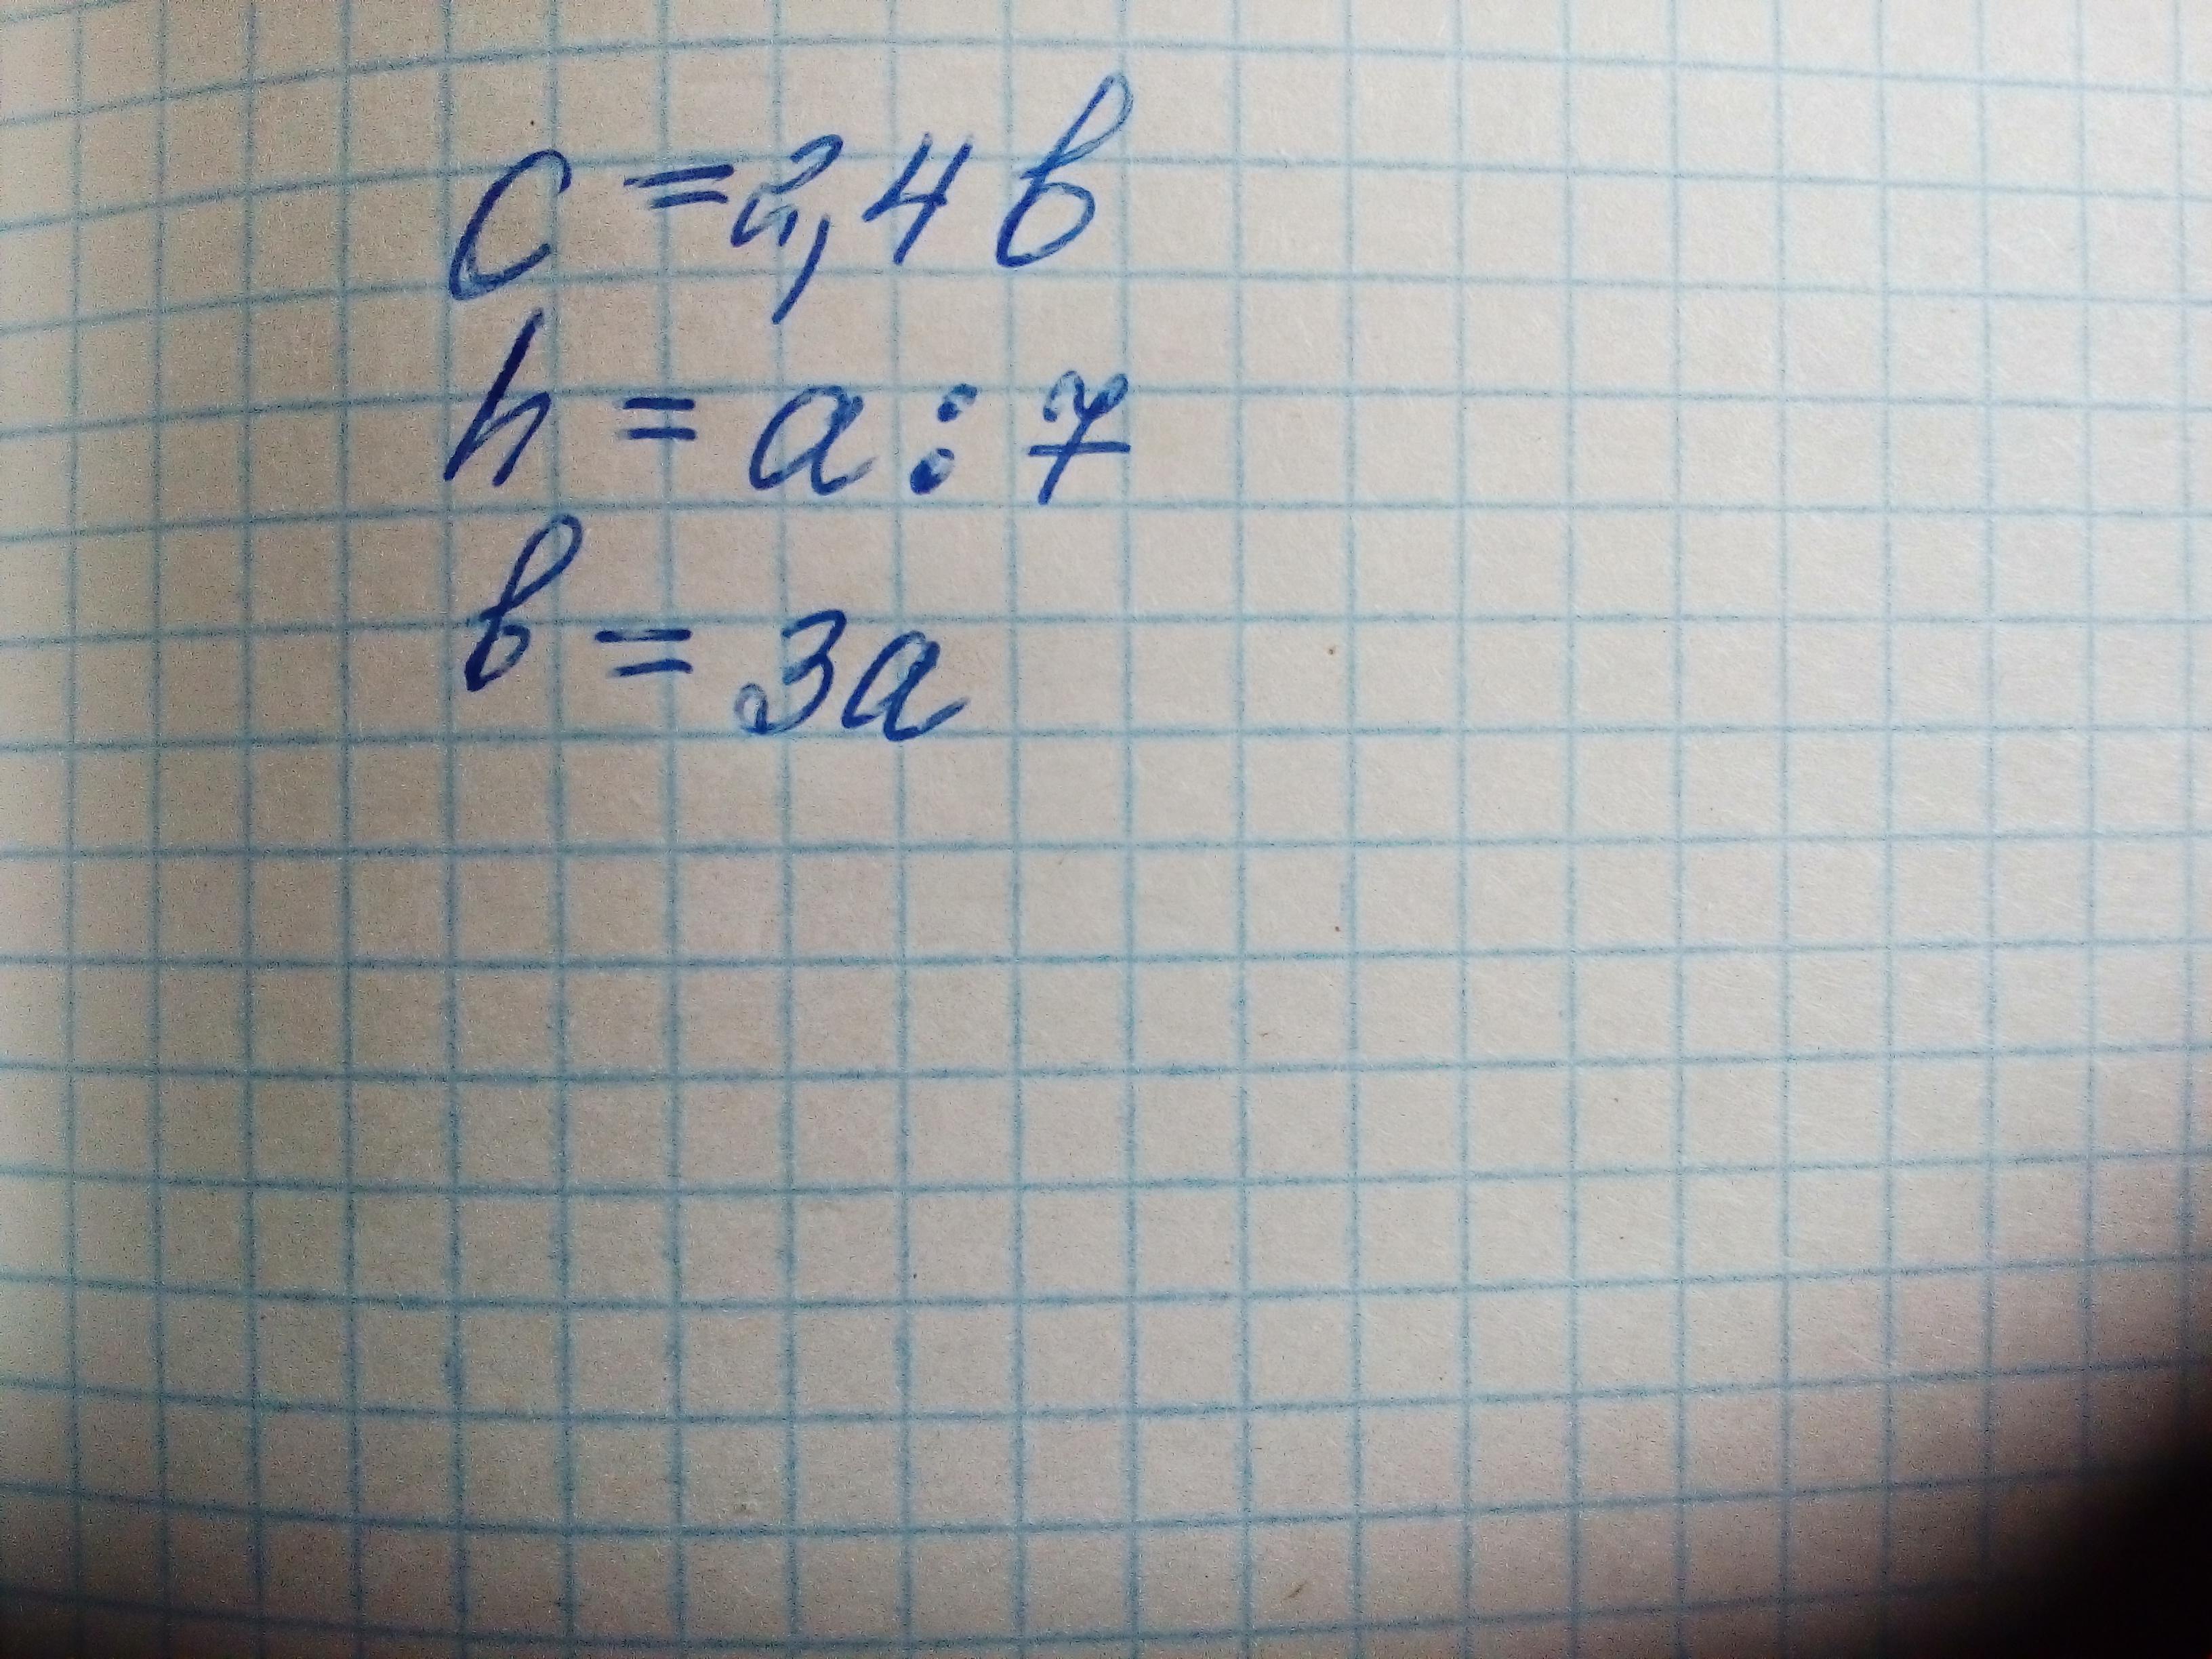 c = 2,4 b
h = a : 7
b = 3a